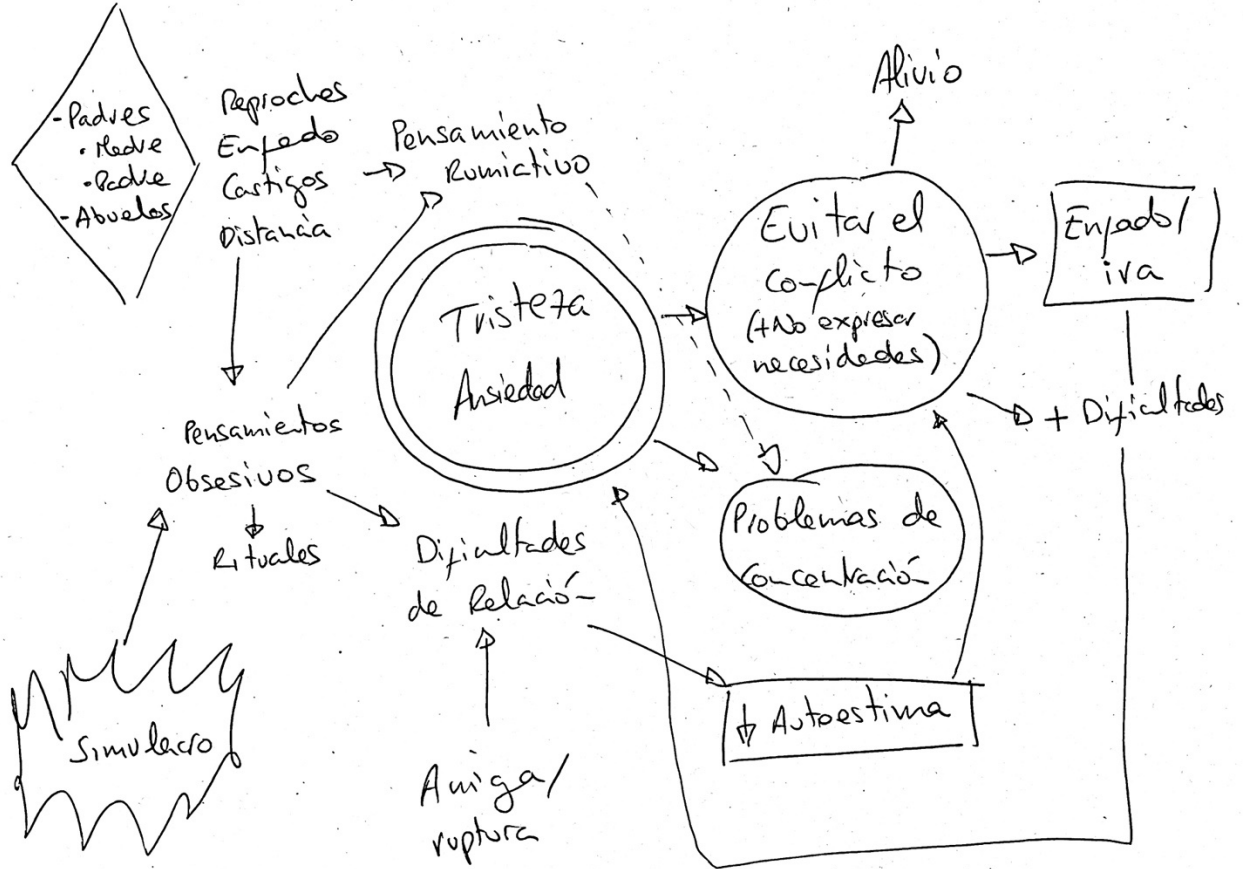 - Padres
• Madre
• Padre
- Abuelos
Reproches
Enfado
Castigos
Distancia
Pensamiento
Rumiativo
Alivio
Evitar el
Conflicto
(+No expresar
necesidades)
Enfado/
ira
Tristeza
Ansiedad
+ Dificultades
Pensamientos
Obsesivos
Rituales
Problemas de
Concentración
Dificultades
de Relación
↓ Autoestima
Simulacro
Amiga/
ruptura